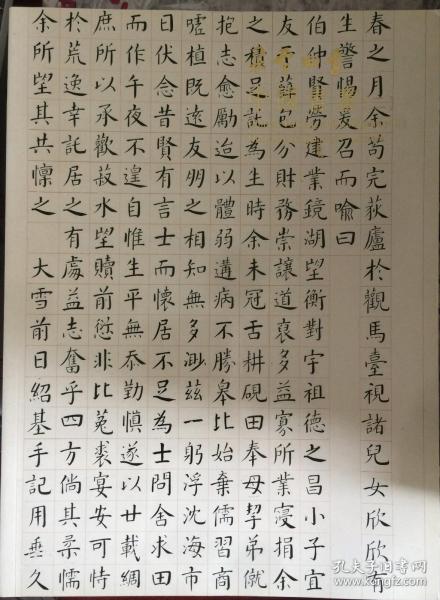 春之月余苟完荻廬於觀馬臺視諸兒女欣欣有
生警惕爰召而喻曰
伯仲賢勞建業鏡湖望衡對宇祖德之昌小子宜
友于薛包分財務崇讓道裒多益寡所業寖捐余
之積足託為生時余未冠舌耕硯田奉母挈弟僦
抱志愈勵迨以體弱遘病不勝皋比始棄儒習商
嘘植既遠友朋之相知無多渺茲一躬浮沈海市
日伏念昔賢有言士而懷居不足為士問舍求田
而作午夜不遑自惟生平無忝勤慎遂以廿載綢
庶所以承歡菽水望贖前愆非比菟裘宴安可恃
於荒逸幸託居之有處益志奮乎四方倘其柔懦
余所望其共懔之 大雪前日紹基手記用垂久
孔夫子旧书网